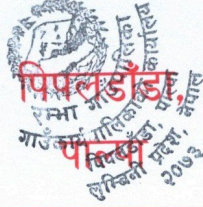 पिपलडाँडा,
पाल्पा
रम्भा गाउँपालिका
गाउँ कार्यपालिकाको कार्यालय
पिपलडाँडा, पाल्पा
लुम्बिनी प्रदेश, नेपाल
२०७३